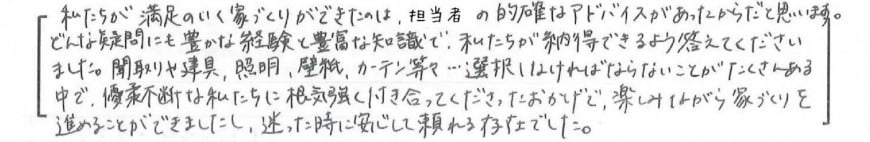 私たちが満足のいく家づくりができたのは、担当者の的確なアドバイスがあったからだと思います。
どんな疑問にも豊かな経験と豊富な知識で、私たちが納得できるよう答えてください
ました。間取りや建具、照明、壁紙、カーテン等々…選択しなければならないことがたくさんある
中で、優柔不断な私たちに根気強く付き合ってくださったおかげで、楽しみながら家づくりを
進めることができましたし、迷った時に安心して頼れる存在でした。